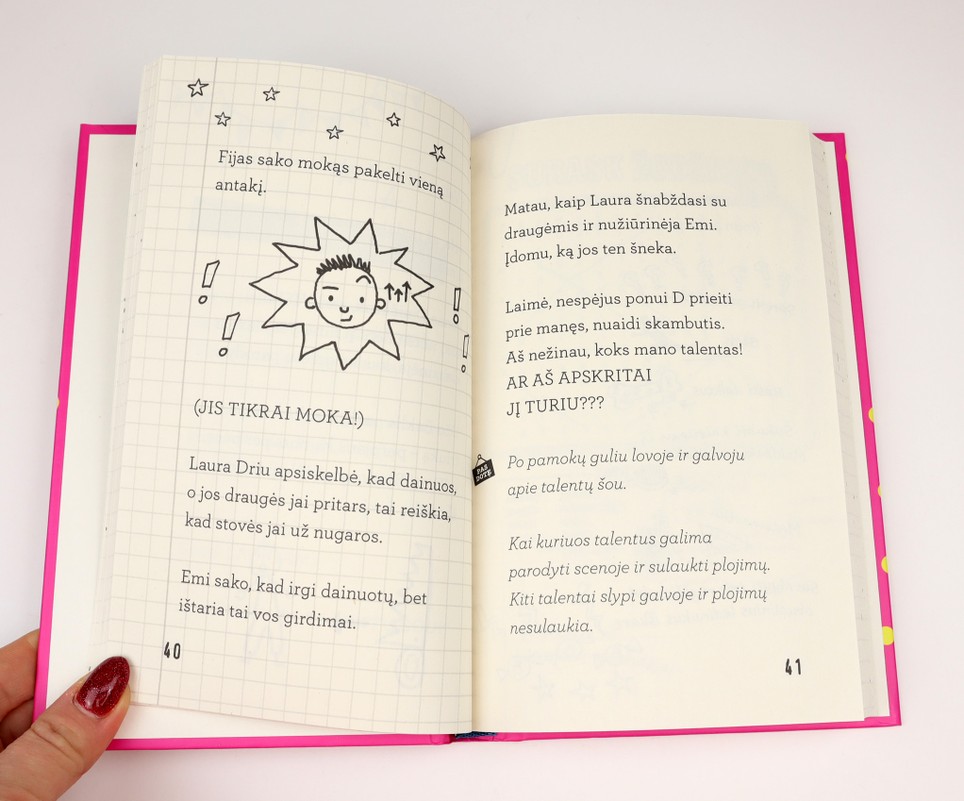 Fijas sako mokąs pakelti vieną
antakį.
(JIS TIKRAI MOKA!)
Laura Driu apsiskelbė, kad dainuos,
o jos draugės jai pritars, tai reiškia,
kad stovės jai už nugaros.
Emi sako, kad irgi dainuotų, bet
ištaria tai vos girdimai.
40
Matau, kaip Laura šnabždasi su
draugėmis ir nužiūrinėja Emi.
Įdomu, ką jos ten šneka.
Laimė, nespėjus ponui D prieiti
prie manęs, nuaidi skambutis.
Aš nežinau, koks mano talentas!
AR AŠ APSKRITAI
JĮ TURIU???
PAS
DOTĘ
Po pamokų guliu lovoje ir galvoju
apie talentų šou.
Kai kuriuos talentus galima
parodyti scenoje ir sulaukti plojimų.
Kiti talentai slypi galvoje ir plojimų
nesulaukia.
41